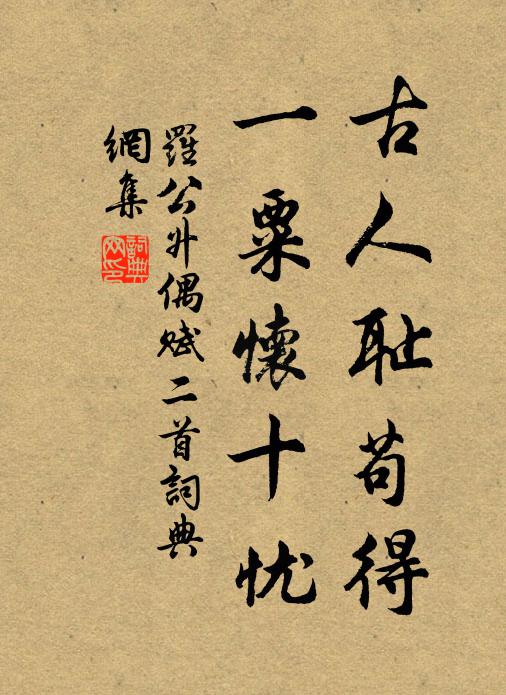 古人耻苟得
一粟懷十忧
羅公升偶赋二首詞典
網集
詞典
网印